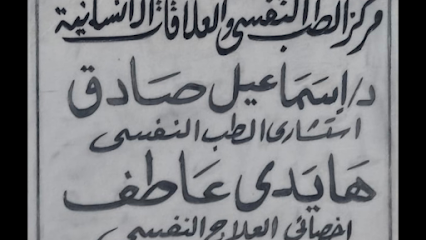 مركز الطب النفسي والعلاقات الانسانية
د/إسماعيل صادق
استشارى الطب النفسى
هايدى عاطف
اخصائى العلاج النفسى